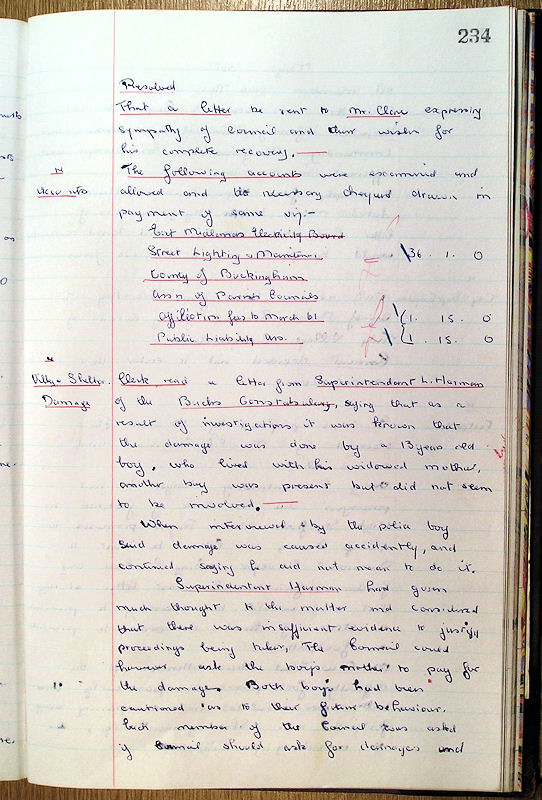 234
Resolved
That a letter be sent to Mr. Clare expressing
sympathy of Council and their wishes for
his complete recovery.
The following accounts were examined and
Accounts
allowed and the necessary cheques drawn in
payment of same viz:-
East Midlands Electricity Board
Street Lighting & Maintence 36 . 1 . 0
County of Buckingham
Assn of Parish Councils
Affiliation fees to March 61 1 . 15 . 0
Public Liability Ins. 1 . 15 . 0
Village Shelter Clerk read a letter from Superintendant L. Harman
Damage of the Bucks Constabulary, saying that as a
result of investigations, it was known that
the damage was done by a 13 years old
boy, who lived with his widowed mother,
another boy was present but did not seem
to be involved.
When interviewed by the police boy
said damage was caused accidently, and
continued saying he did not mean to do it.
Superintendant Harman had given
much thought to the matter and considered
that there was insufficient evidence to justify
proceedings being taken, The Council could
however ask the boys mother to pay for
the damage. Both boys had been
cautioned as to their future behaviour.
Each member of the Council was asked
if Council should ask for damages and